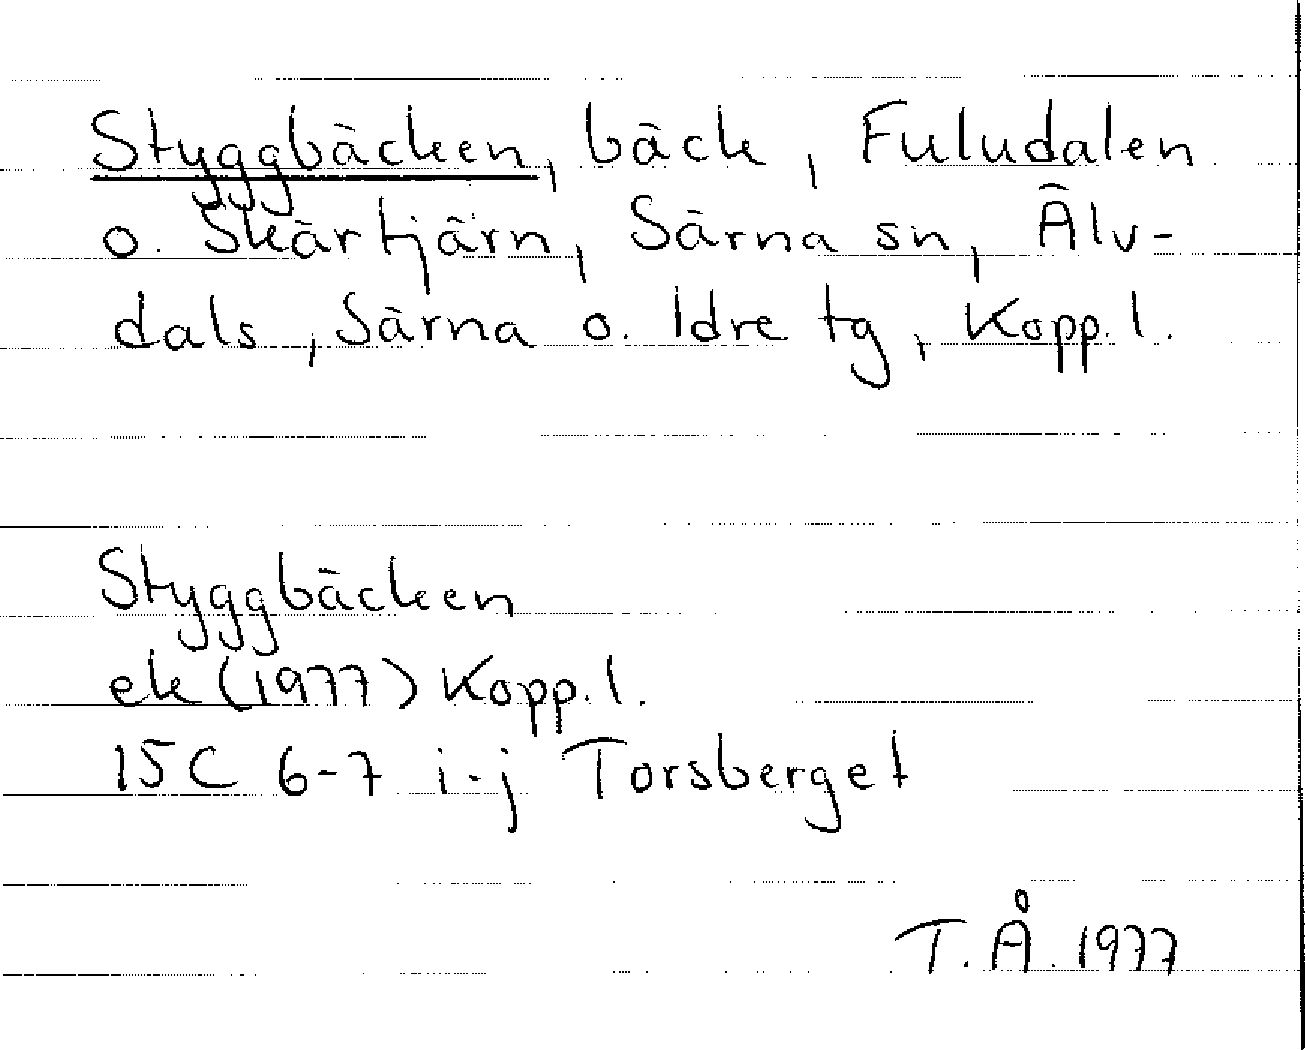 Styggbäcken, bäck, Fuludalen
o. Skärtjärn, Särna sn, Älv-
dals, Särna o. Idre tg, Kopp. l.
Styggbäcken
ek (1977) Kopp. l.
15C 6-7 i-j Torsberget
T. Å. 1977